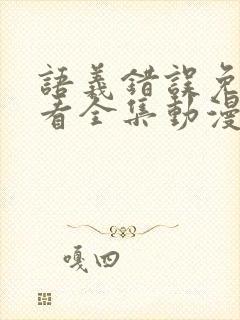 語義錯誤免
看全集動漫
嘎四